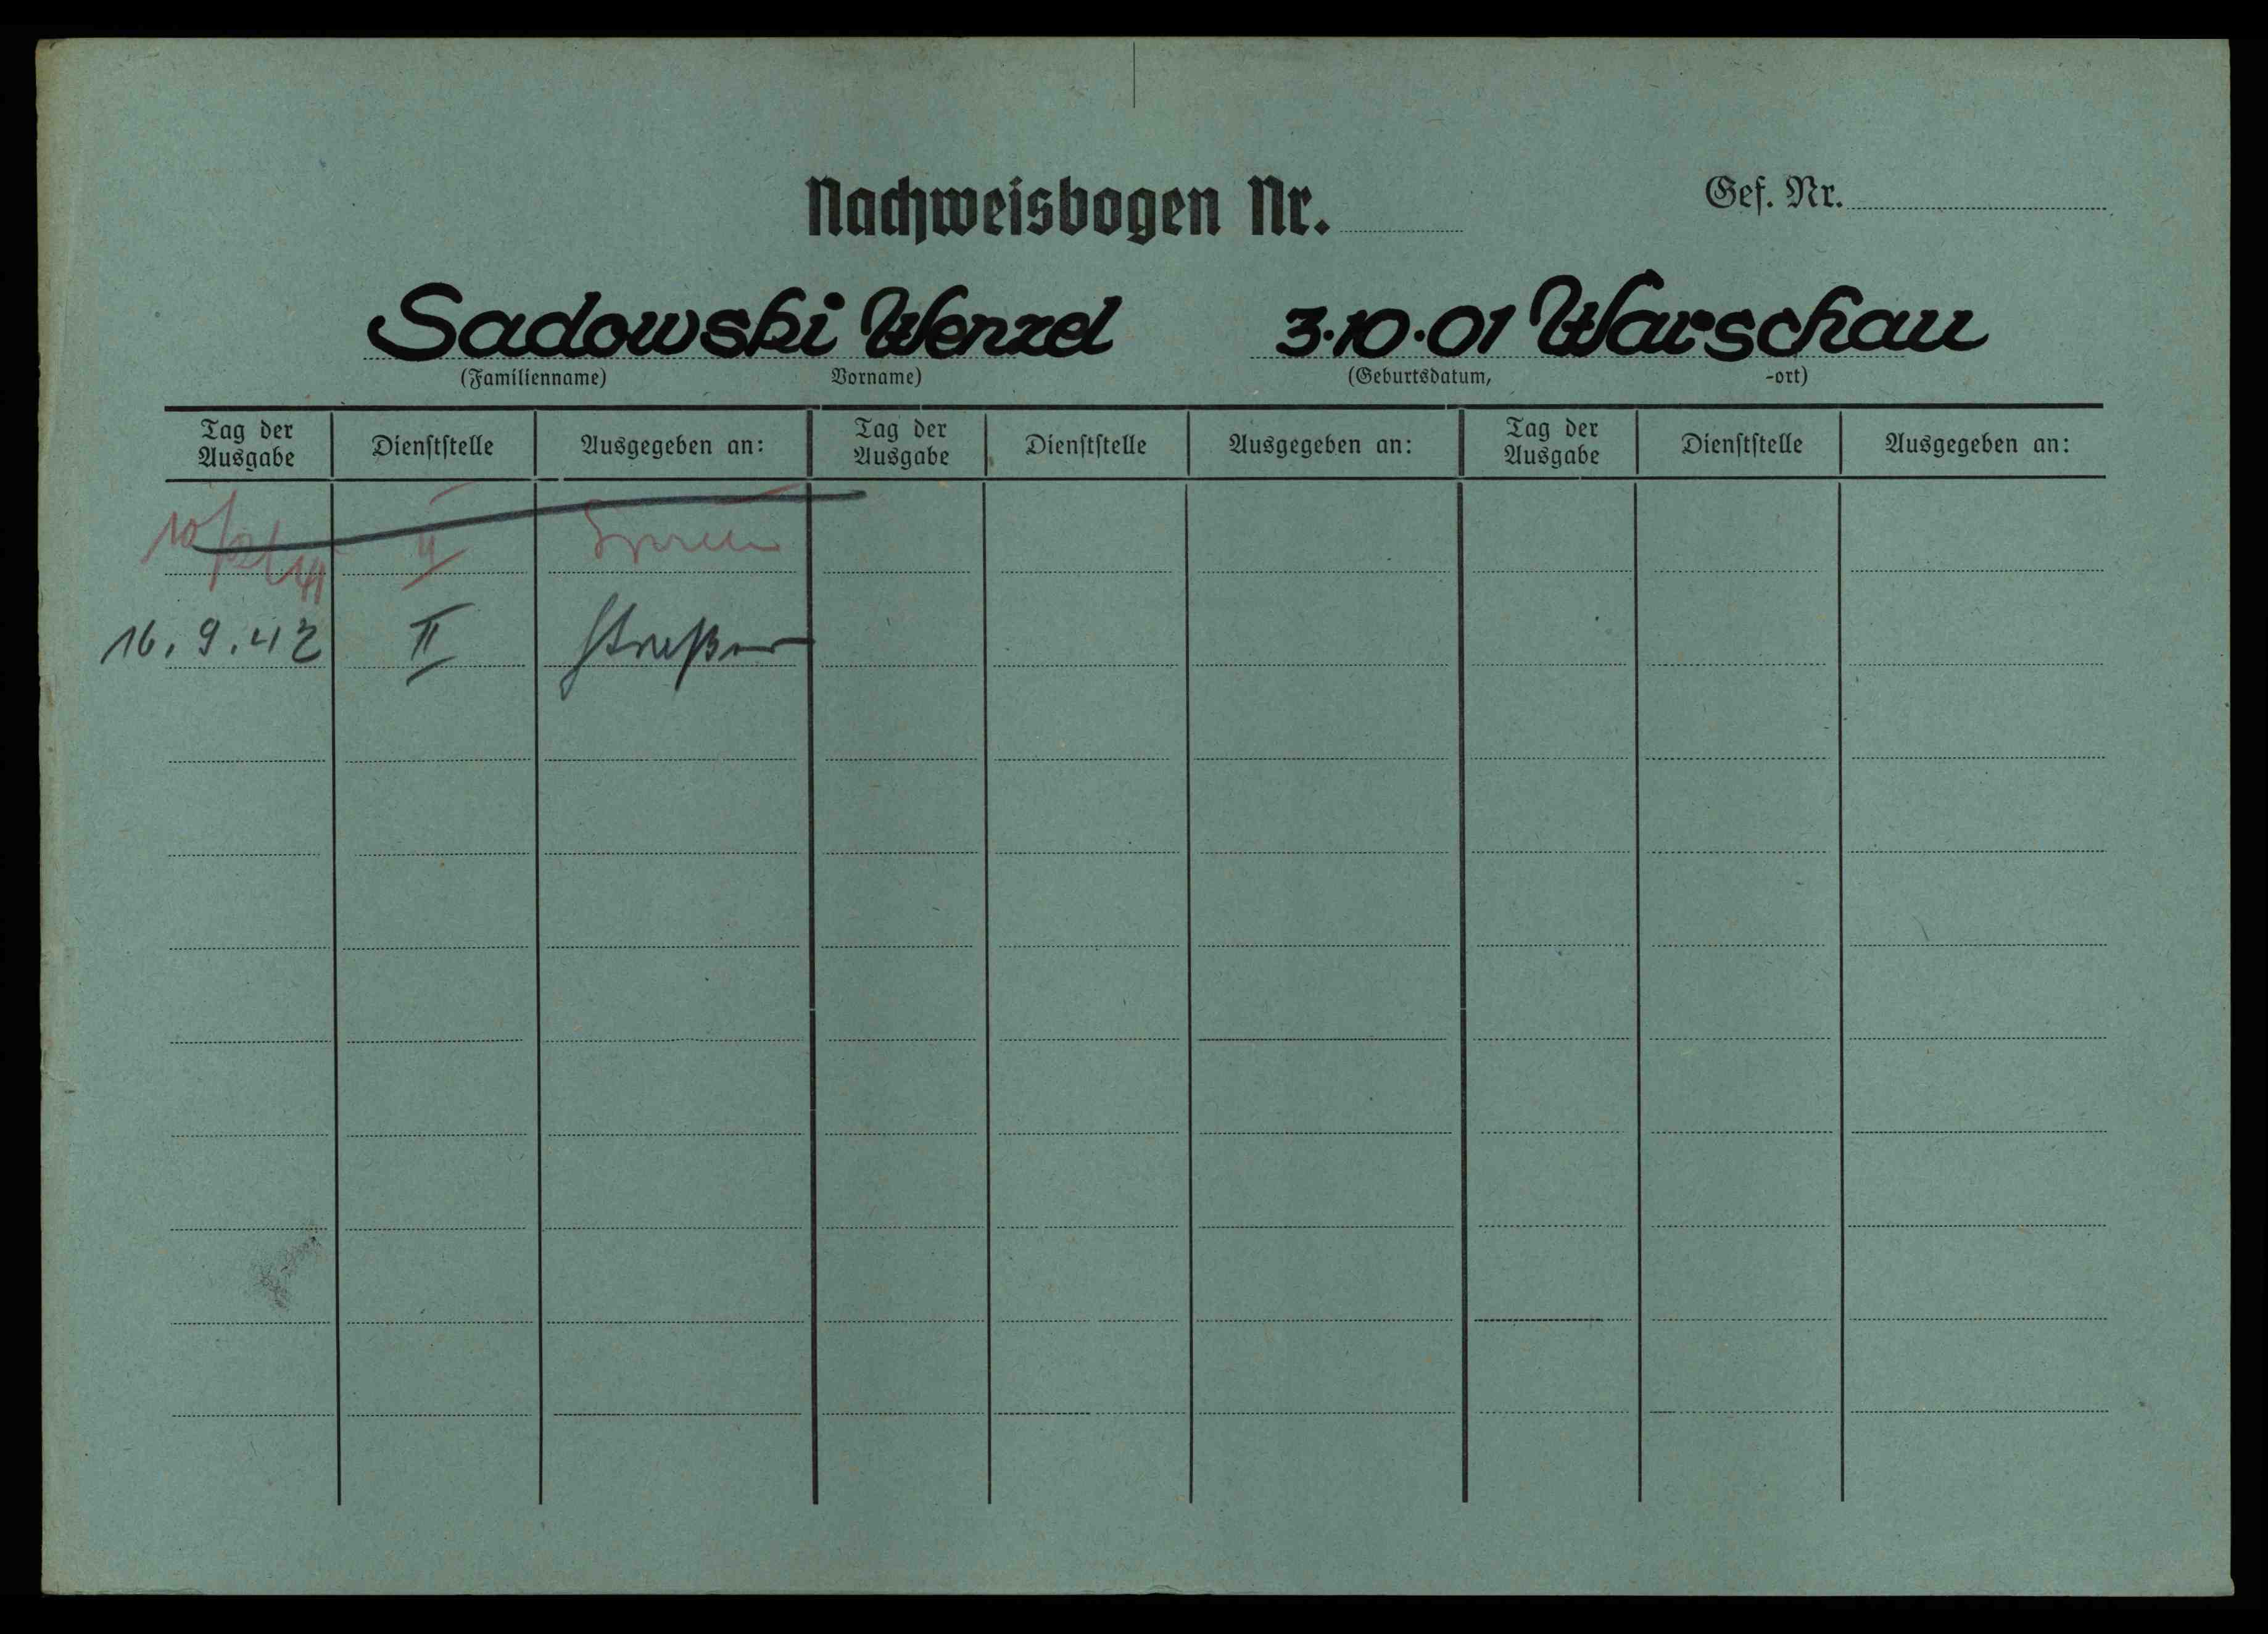 Nachweisbogen Nr.
Gef. Nr.
Sadowski Wenzel 3.10.01 Warschau
(Familienname) Vorname) (Geburtsdatum, -ort)
Tag der Ausgabe Dienststelle Ausgegeben an: Tag der Ausgabe Dienststelle Ausgegeben an: Tag der Ausgabe Dienststelle Ausgegeben an:
II
16.9.42 II